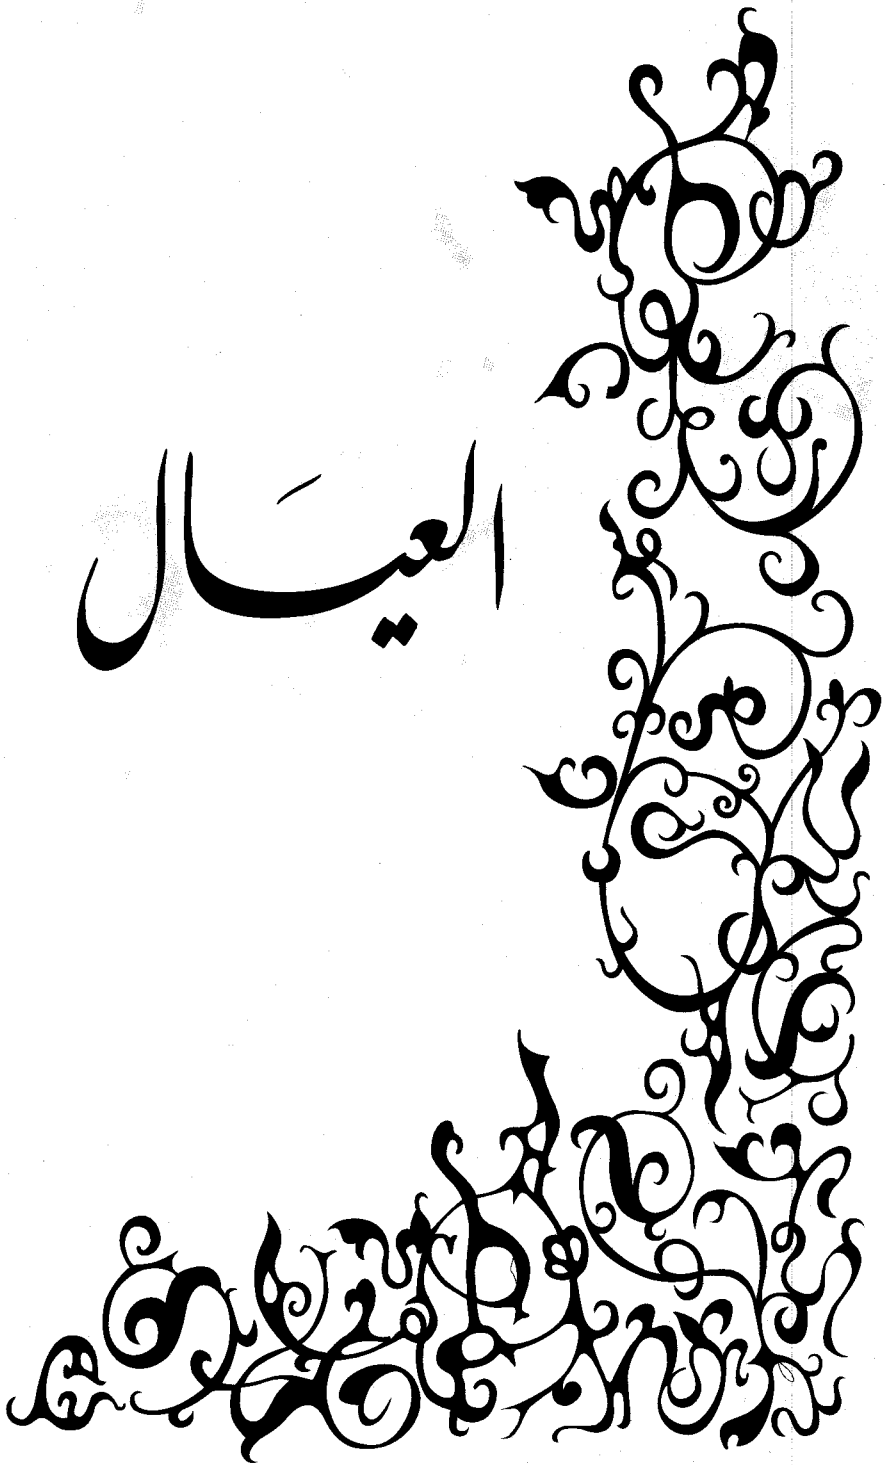 العيَال